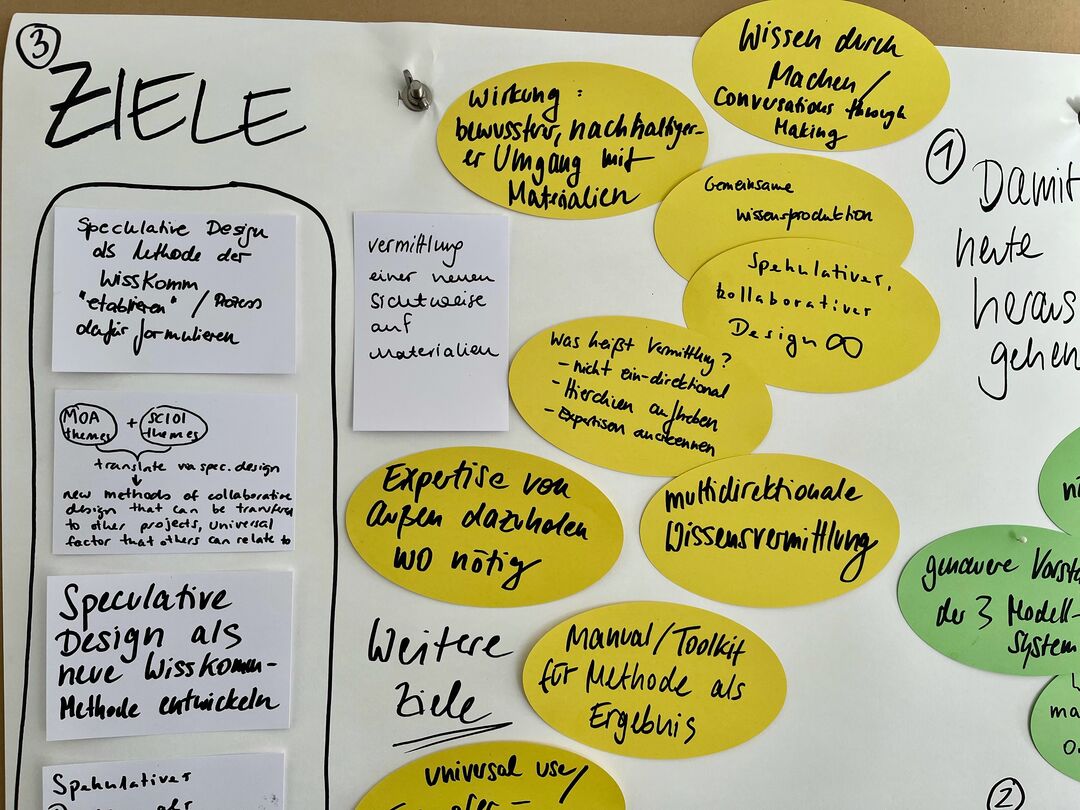 3
ZIELE
Speculative Design
als Methode der
WissKomm
"etablieren" / Prozess
dafür formulieren
MOA themes + SCIOI themes
translate via spec. design
↓
new methods of collaborative
design that can be transfered
to other projects, universal
factor that others can relate to
Speculative
Design als
neue WissKomm-
Methode entwickeln
Spekulatives
vermittlung
einer neuen
Sichtweise
auf
Materialien
Wirkung:
bewussterer, nachhaltiger-
er Umgang mit
Materialien
Wissen durch
Machen/
Conversations through
Making
Gemeinsame
Wissensproduktion
Spekulatives,
kollaboratives
Design ∞
Was heißt Vermittlung?
- nicht ein-direktional
- Hierchien aufheben
- Expertisen anerkennen
Expertise von
Außen dazuholen
wo nötig
multidirektionale
Wissensvermittlung
Weitere
Ziele
Manual/Toolkit
für Methode als
Ergebnis
universal use/
1
Damit
heute
heraus
gehen
genauere
der 3 Modell-
System
2